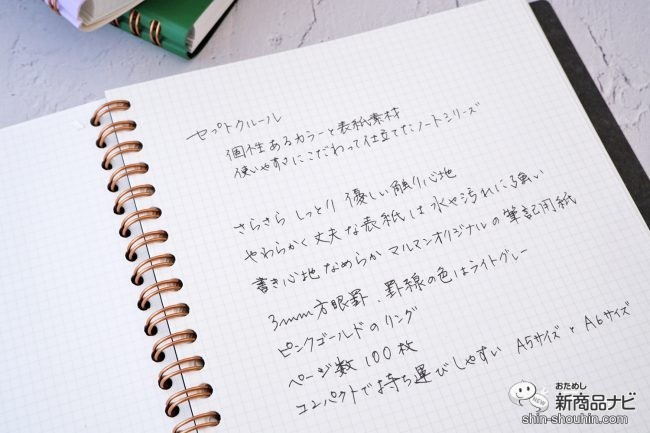 セプトクルール
個性あるカラーと表紙素材
使いやすさにこだわって仕立てたノートシリーズ
さらさら しっとり 優しい触り心地
やわらかく丈夫な表紙は水や汚れに強い
書き心地なめらか マルマンオリジナルの筆記用紙
3mm方眼罫、罫線の色はライトグレー
ピンクゴールドのリング
ページ数100枚
コンパクトで持ち運びしやすい A5サイズとA6サイズ
NEW
おためし
新商品ナビ
shin-shouhin.com